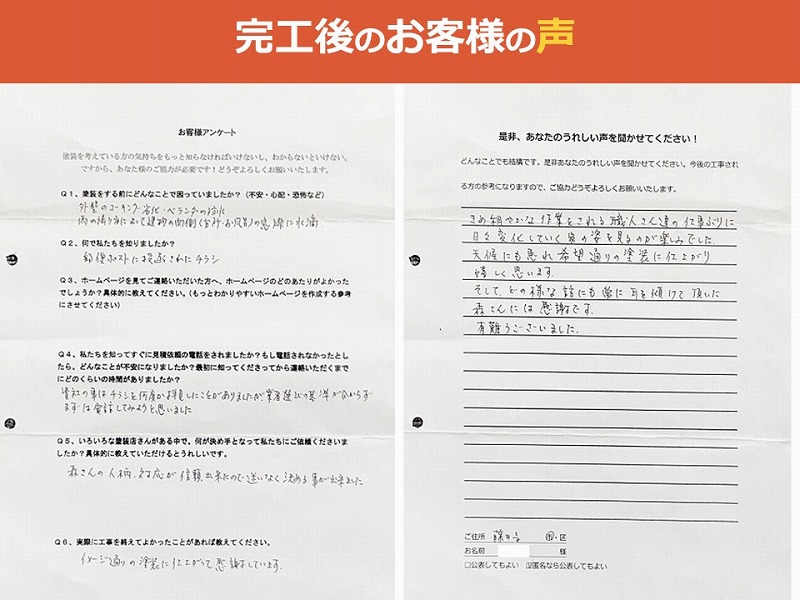 完工後のお客様の声
お客様アンケート
塗装を考えている方の気持ちをもっと知らなければいけないし、わからないといけない。
ですから、あなた様のご協力が必要です！どうぞよろしくお願いいたします。
Q1、塗装をする前にどんなことで困っていましたか？（不安・心配・恐怖など）
外壁のコーキング劣化・ベランダの防水
雨の降り方によって建物の西側(台所・お風呂)の窓
Q2、何で私たちを知りましたか？
郵便ポストに投函されたチラシ
Q3、ホームページを見てご連絡いただいた方へ、ホームページのどのあたりがよかった
でしょうか？具体的に教えてください。（もっとわかりやすいホームページを作成する参考
にさせてください）
Q4、私たちを知ってすぐに見積依頼の電話をされましたか？もし電話されなかったとし
たら、どんなことが不安になりましたか？最初に知ってくださってから連絡いただくまで
にどのくらいの時間がありましたか？
貴社の事はチラシを何度か拝見したことがありましたが業者選びの基準が分からず
まずは電話してみようと思いました
Q5、いろいろな塗装店さんがある中で、何が決め手となって私たちにご依頼くださいま
したか？具体的に教えていただけるとうれしいです。
森さんの人柄、対応が信頼出来たので迷いなく決める事が出来ました
Q6、実際に工事を終えてよかったことがあれば教えてください。
イメージ通りの塗装に仕上がって感謝しています。
是非、あなたのうれしい声を聞かせてください！
どんなことでも結構です。是非あなたのうれしい声を聞かせてください。今後の工事され
る方の参考になりますので、ご協力どうぞよろしくお願いいたします。
きめ細やかな作業をされる職人さん達の仕事ぶりに
日々変化していく家の姿を見るのが楽しみでした。
天候にも恵まれ希望通りの塗装に仕上がり
嬉しく思います。
そして、どの様な話にも常に耳を傾けて頂いた
森さんには感謝です。
有難うございました。
ご住所 藤井寺 市・区
お名前 様
□公表してもよい ☑匿名なら公表してもよい